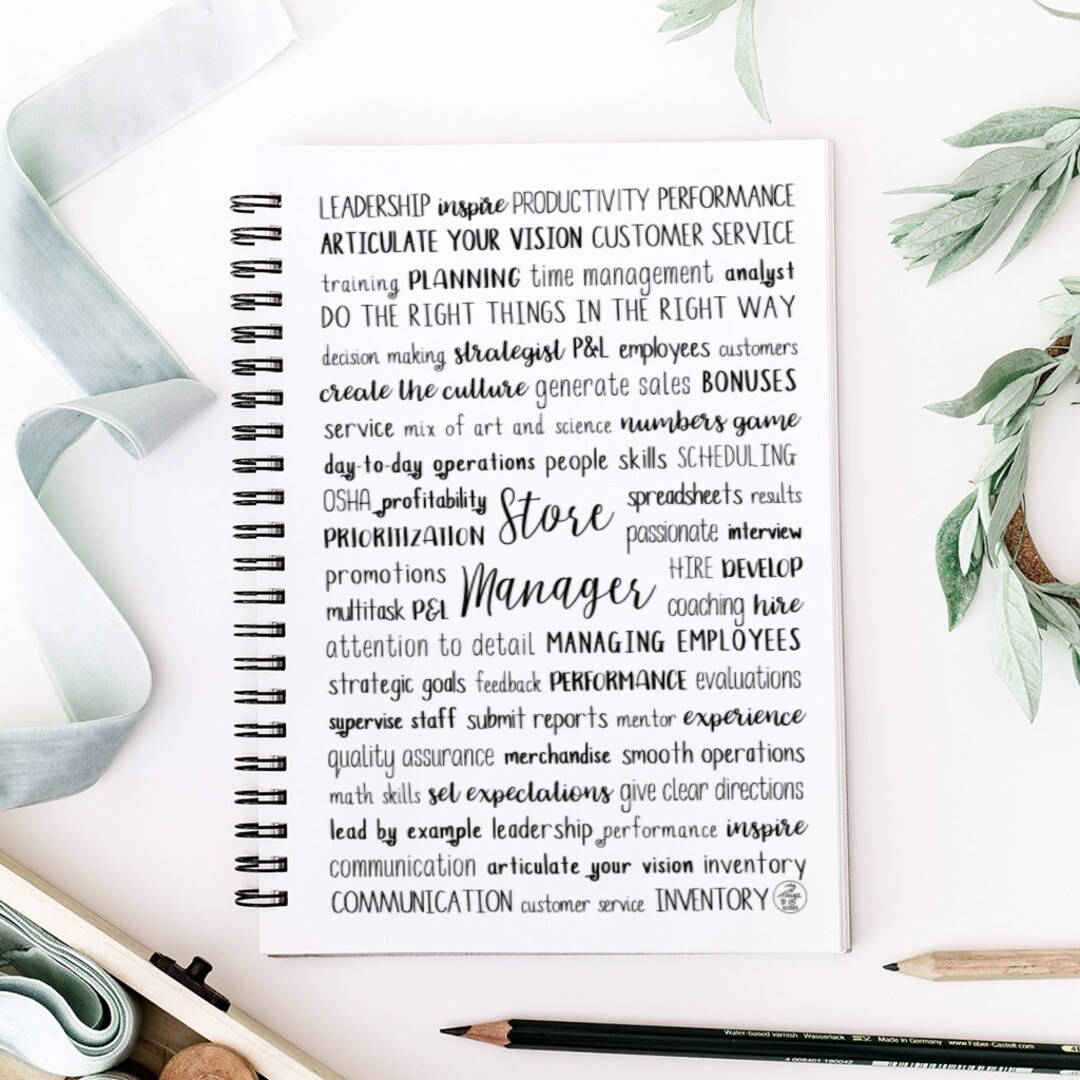 LEADERSHIP inspire PRODUCTIVITY PERFORMANCE
ARTICULATE YOUR VISION CUSTOMER SERVICE
training PLANNING time management analyst
DO THE RIGHT THINGS IN THE RIGHT WAY
decision making strategist P&L employees customers
create the culture generate sales BONUSES
service mix of art and science numbers game
day-to-day operations people skills SCHEDULING
OSHA profitability
PRIORITIZATION
promotions
multitask P&L
Store
Manager
spreadsheets results
passionate interview
HIRE DEVELOP
coaching hire
attention to detail MANAGING EMPLOYEES
strategic goals feedback PERFORMANCE evaluations
supervise staff submit reports mentor experience
quality assurance merchandise smooth operations
math skills set expectations give clear directions
lead by example leadership performance inspire
communication articulate your vision inventory
COMMUNICATION customer service INVENTORY
Water-based varnish Wasserlack Made in Germany www.Faber-Castell.com
4 005401 190042